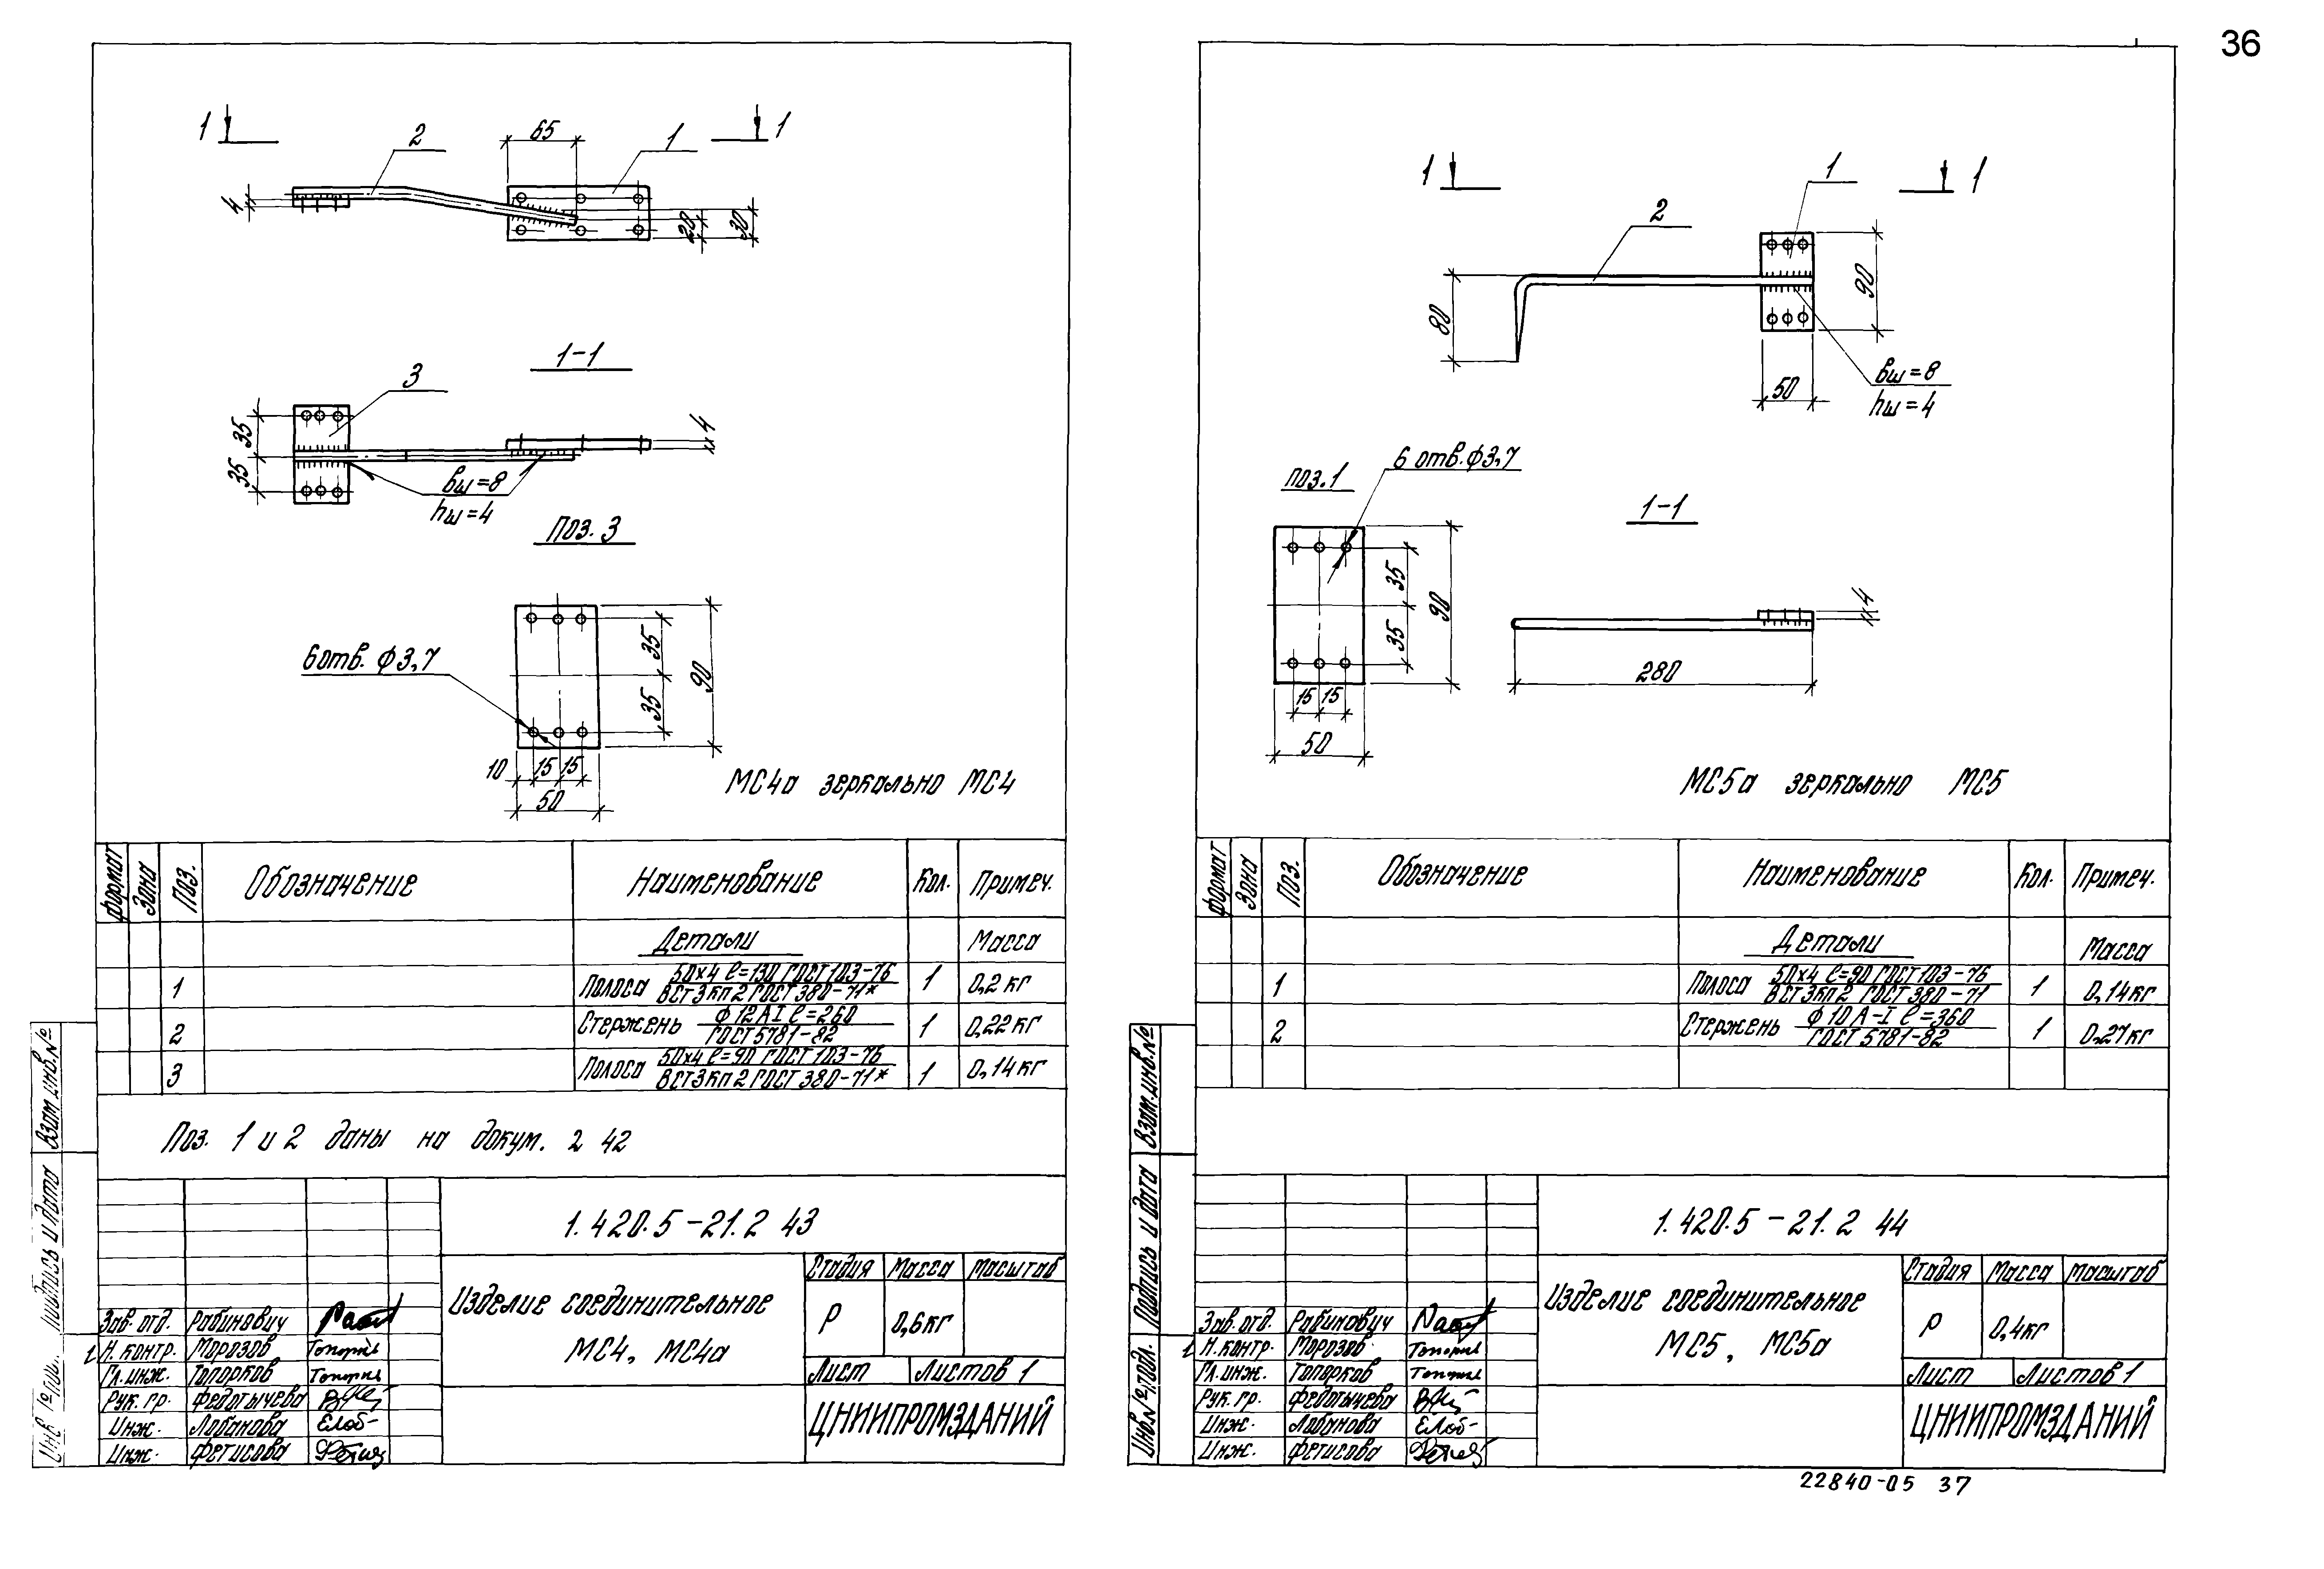 36
1 1
2 65 1
4 20 30
1-1
3
35 35 4
bш=8
hш=4
Поз. 3
6 отв. ф3,7
35 35 90
10 15 15
50
МС4а зеркально МС4
формат Зона Поз. Обозначение Наименование Кол. Примеч.
Детали Масса
1 Полоса 50×4 ℓ=130 ГОСТ 103-76 1 0,2кг
ВСт3кп2 ГОСТ 380-71*
2 Стержень ф12АI ℓ=260 1 0,22кг
ГОСТ 5781-82
3 Полоса 50×4 ℓ=90 ГОСТ 103-76 1 0,14кг
ВСт3кп2 ГОСТ 380-71*
Поз. 1 и 2 даны на докум. 2 42
1.420.5-21.2 43
Изделие соединительное
МС4, МС4а
Стадия Масса Масштаб
Р 0,6кг
Лист Листов 1
ЦНИИПРОМЗДАНИЙ
Зав. отд. Рабинович
Н. контр. Морозов
Гл. инж. Топорков
Рук. гр. Федотычева
Инж. Лобанова
Инж. Фетисова
Взам инв.№
Подпись и дата
1 1
1
2
80 90
50
bш=8
hш=4
поз.1
6 отв. ф3,7
1-1
35 35 90
15 15
50
4
280
МС5а зеркально МС5
формат Зона Поз. Обозначение Наименование Кол. Примеч.
Детали Масса
1 Полоса 50×4 ℓ=90 ГОСТ 103-76 1 0,14кг
ВСт3кп2 ГОСТ 380-71
2 Стержень ф10А-I ℓ=360 1 0,27кг
ГОСТ 5781-82
1.420.5-21.2 44
Изделие соединительное
МС5, МС5а
Стадия Масса Масштаб
Р 0,4кг
Лист Листов 1
ЦНИИПРОМЗДАНИЙ
Зав. отд. Рабинович
Н. контр. Морозов
Гл. инж. Топорков
Рук. гр. Федотычева
Инж. Лобанова
Инж. Фетисова
Взам. инв.№
Подпись и дата
Инв.№ подл.
22840-05 37